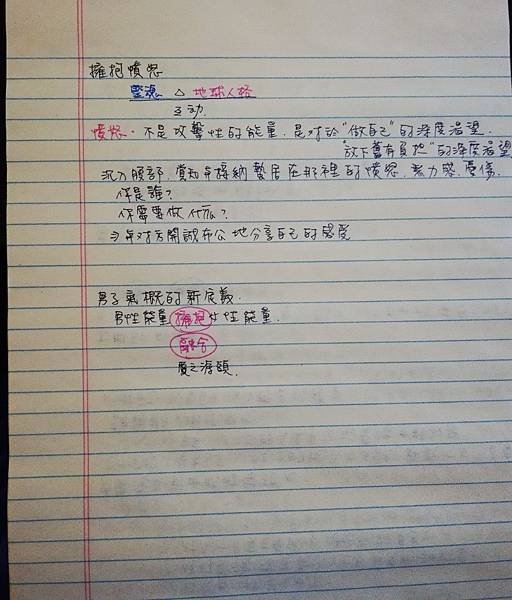 擁抱憤怒
靈魂 △ 地球人格
互動
憤怒. 不是攻擊性的能量. 是對於"做自己"的深度渴望.
"放下舊有負担"的深度渴望
沉入腹部. 覺知并接納蟄居在那裡的憤怒. 無力感. 憂傷.
你是誰?
你需要做什麼?
并對方開誠布公地分享自己的感受
男子氣概的新定義.
男性能量擁抱女性能量.
融合
愛之源頭.